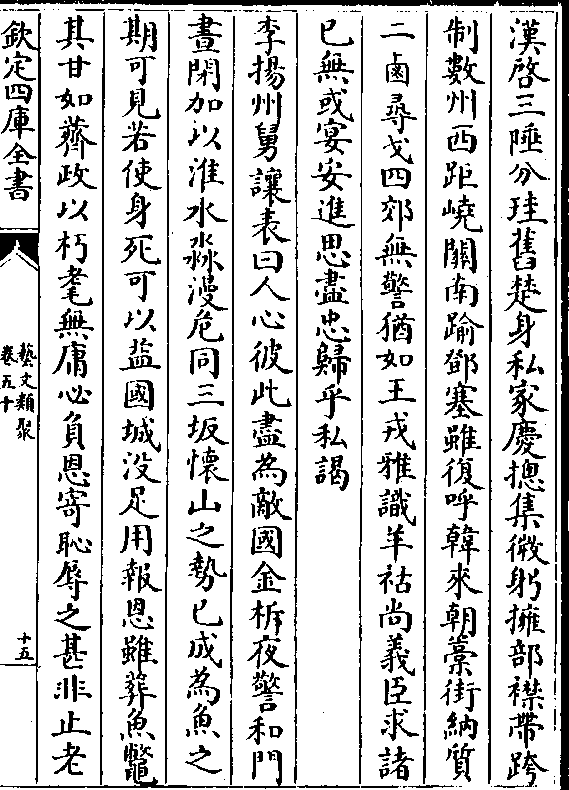 漢啓三陲分珪舊楚身私家慶摠集微躬擁部襟帶跨
制數州西距嶢關南踰鄧塞雖復呼韓來朝藁街納質
二鹵尋戈四郊無警猶如王戎雅識羊祜尚義臣求諸
已無或宴安進思盡忠歸乎私謁
李揚州舅讓表曰人心彼此盡為敵國金柝夜警和門
晝閑加以淮水淼漫危同三坂懷山之勢已成為魚之
期可見若使身死可以益國城没足用報恩雖葬魚鼈
其甘如薺政以朽耄無庸必負恩寄恥辱之甚非止老
欽定四庫全書
藝文類聚
卷五十
十五